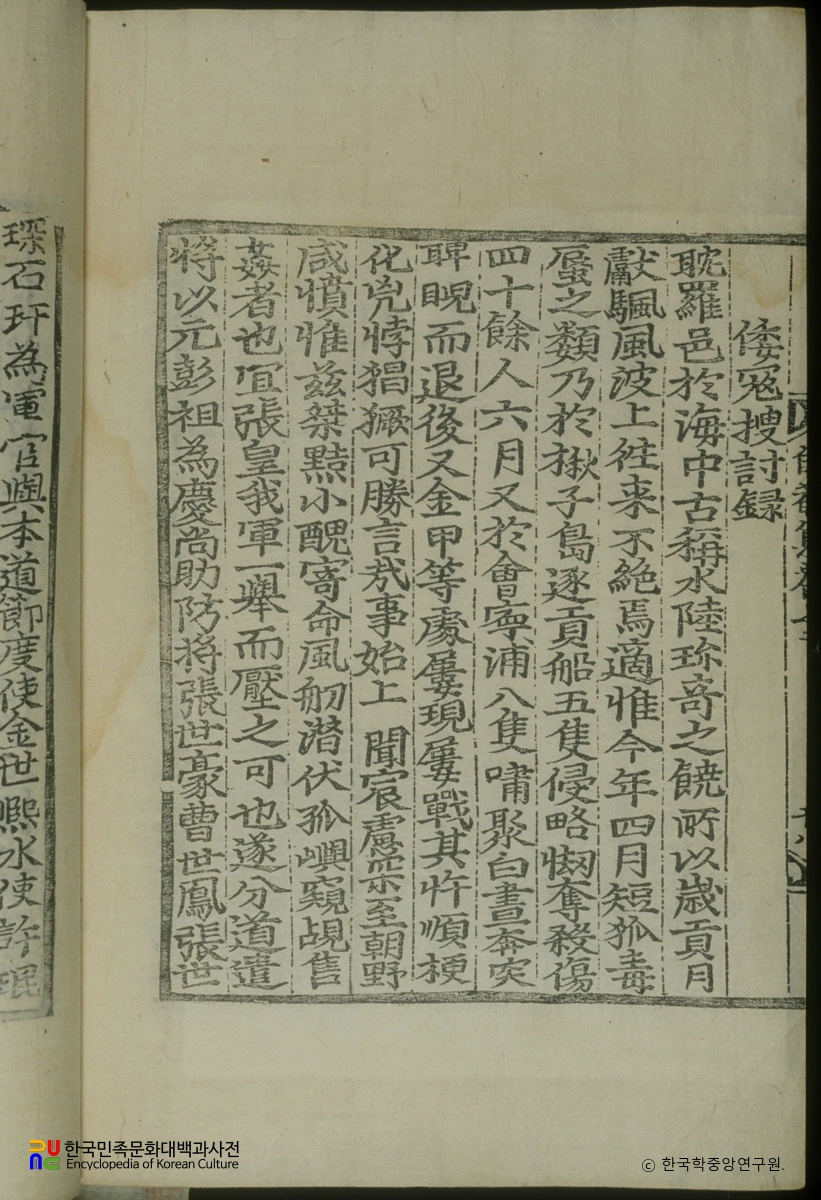 倭寇搜討録
耽羅邑於海中古稱水陸珎竒之饒所以歲貢月
獻颿風波上徃来不絶焉適惟今年四月短狐毒
蜃之類乃於楸子島逐貢船五隻侵略刼奪殺傷
四十餘人六月又於會寧浦八隻嘯聚白晝奔突
睥睨而退後又金甲等處屢現屢戰其忤順梗
化兇悖猖獗可勝言㢤事始上聞宸慮崇至朝野
咸憤惟兹桀黠小醜寄命風舠潜伏孤嶼窺覘售
姦者也宜張皇我軍一舉而壓之可也遂分道遣
將以元彭祖為慶尚助防將張世豪曹世鳳張世
琛石玕為軍官與本道節度使金世熈水使許琨
한국민족문화대백과사전
Encyclopedia of Korean Culture
ⓒ 한국학중앙연구원.